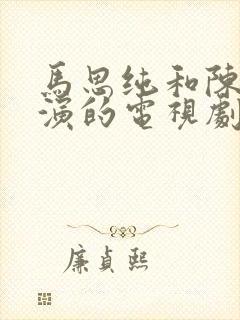 馬思纯和陳
演的電視劇
廉貞熙